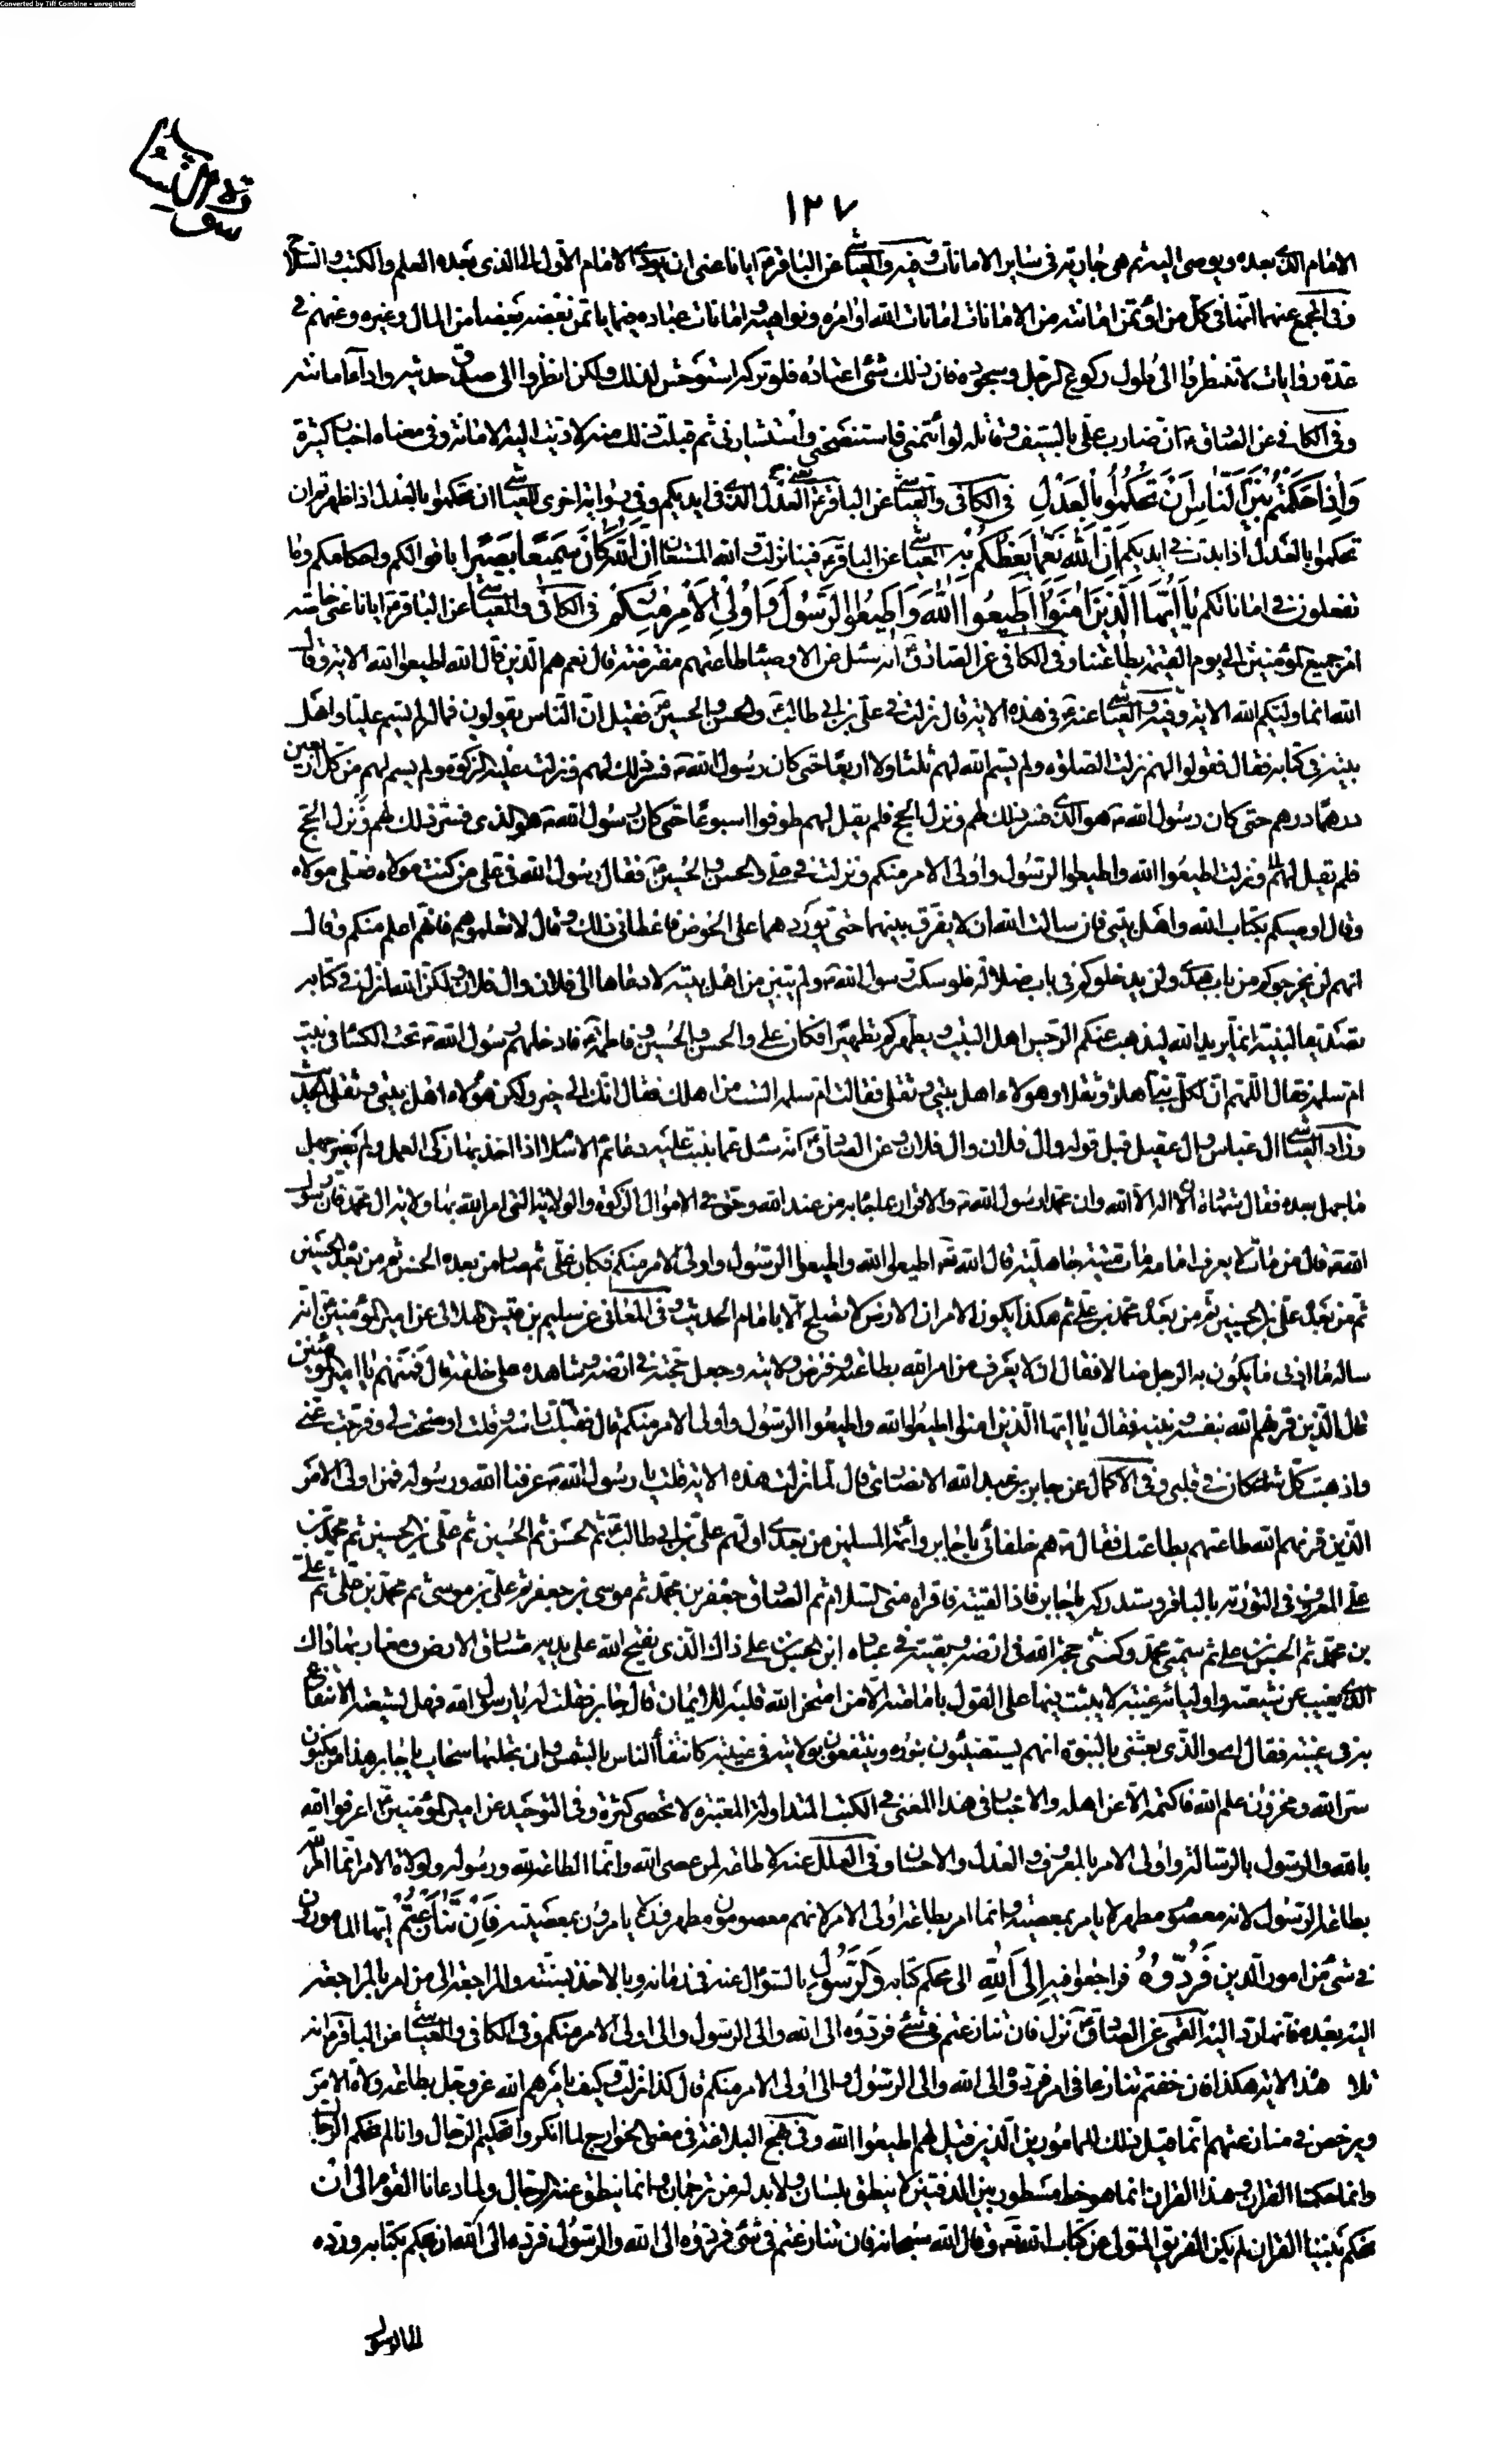 Converted by Tiff Combine - unregistered
سورة النساء
١٢٧
الامام الذى بعده ويوصى اليه ثم هى جارية فى ساير الامانات وفيه والعياشى عن الباقر ع ايانا عنى ان يؤدى الامام الاول الى الذى بعده العلم والكتب والسلاح
وفى المجمع عنهما انها فى كل من اؤتمن امانة من الامانات امانات الله اوامره ونواهيه وامانات عباده فيما ياتمن بعضهم بعضا من المال وغيره وعنهم فى
عدة روايات لا تنظروا الى طول ركوع الرجل وسجوده فان ذلك شئ اعتاده فلو تركه استوحش لذلك ولكن انظروا الى صدق حديثه واداء امانته
وفى الكافى عن الصادق ع ان ضارب على بالسيف وقاتله لو ائتمننى واستنصحنى واستشارنى ثم قبلت ذلك منه لاديت اليه الامانة وفى معناه اخبار كثيرة
وَاِذا حَكَمْتُمْ بَيْنَ النّاسِ اَنْ تَحْكُمُوا بِالْعَدْلِ فى الكافى والعياشى عن الباقر ع يعنى العدل الذى فى ايديكم وفى رواية اخرى للعياشى ان تحكموا بالعدل اذا ظهرتم ان
تحكموا بالعدل اذا بدت فى ايديكم اِنَّ اللهَ نِعِمّا يَعِظُكُمْ بِهِ العياشى عن الباقر ع فينا نزلت والله المستعان اِنَّ اللهَ كانَ سَميعًا بَصيرًا باقوالكم واحكامكم وما
تفعلون فى اماناتكم يا اَيُّهَا الَّذينَ امَنُوا اَطيعُوا اللهَ وَاَطيعُوا الرَّسُولَ وَاُولِى الْاَمْرِ مِنْكُمْ فى الكافى والعياشى عن الباقر ع ايانا عنى خاصة
امر جميع المؤمنين الى يوم القيمة بطاعتنا وفى الكافى عن الصادق ع انه سئل عن الاوصياء طاعتهم مفترضة قال نعم هم الذين قال الله اطيعوا الله الاية وقال
الله انما وليكم الله الاية وفيه والعياشى عنه ع فى هذه الاية قال نزلت فى على بن ابى طالب والحسن والحسين ع فقيل ان الناس يقولون فما له لم يسم عليا واهل
بيته فى كتابه فقال فقولوا لهم نزلت الصلوة ولم يسم الله لهم ثلثا ولا اربعا حتى كان رسول الله ص فسر ذلك لهم ونزلت عليه الزكوة ولم يسم لهم من كل اربعين
درهما درهم حتى كان رسول الله ص هو الذى فسر ذلك لهم ونزل الحج فلم يقل لهم طوفوا اسبوعا حتى كان رسول الله ص هو الذى فسر ذلك لهم ونزل الحج
فلم يقل لهم ونزلت اطيعوا الله واطيعوا الرسول واولى الامر منكم ونزلت فى على والحسن والحسين ع فقال رسول الله فى على من كنت مولاه فعلى مولاه
وقال اوصيكم بكتاب الله واهل بيتى فان سالت الله ان لا يفرق بينهما حتى يوردهما على الحوض فاعطانى ذلك وقال لا تعلموهم فانهم اعلم منكم وقال
انهم لن يخرجوكم من باب هدى ولن يدخلوكم فى باب ضلالة فلو سكت رسول الله ص ولم يبين من اهل بيته لادعاها ال فلان وال فلان ولكن الله انزل فى كتابه
تصديقا لنبيه انما يريد الله ليذهب عنكم الرجس اهل البيت ويطهركم تطهيرا فكان على والحسن والحسين وفاطمة ع فادخلهم رسول الله ص تحت الكساء فى بيت
ام سلمة فقال اللهم ان لكل نبى اهلا وثقلا وهولاء اهل بيتى وثقلى فقالت ام سلمة الست من اهلك فقال انك الى خير ولكن هؤلاء اهل بيتى وثقلى الحديث
وزاد العياشى ال عباس وال عقيل قبل قوله وال فلان وال فلان وعن الصادق ع انه سئل عما بنيت عليه دعائم الاسلام اذا اخذ بها زكى العمل ولم يضر جهل
ما جهل بعده فقال شهادة ان لا اله الا الله وان محمدا رسول الله ص والاقرار بما جاء به من عند الله وحق فى الاموال الزكوة والولاية التى امر الله بها ولاية ال محمد فان رسول
الله ص قال من مات لا يعرف امامه مات ميتة جاهلية قال الله تعه اطيعوا الله واطيعوا الرسول واولى الامر منكم فكان على ثم صار من بعده الحسن ثم من بعده الحسين
ثم من بعده على بن الحسين ثم من بعده محمد بن على ثم هكذا يكون الامر ان الارض لا تصلح الا بامام الحديث وفى المعانى عن سليم بن قيس الهلالى عن امير المؤمنين ع انه
ساله ما ادنى ما يكون به الرجل ضالا فقال ان لا يعرف من امر الله بطاعته وفرض ولايته وجعل حجته فى ارضه وشاهده على خلقه قال فمن هم يا امير المؤمنين
قال الذين قرنهم الله بنفسه ونبيه فقال يا ايها الذين امنوا اطيعوا الله واطيعوا الرسول واولى الامر منكم قال فقبلت راسه وقلت اوضحت لى وفرجت عنى
واذهبت كل شك كان فى قلبى وفى الاكمال عن جابر بن عبد الله الانصارى قال لما نزلت هذه الاية قلت يا رسول الله ص عرفنا الله ورسوله فمن اولى الامر
الذين قرنهم الله طاعتهم بطاعتك فقال ص هم خلفائى يا جابر وائمة المسلمين من بعدى اولهم على بن ابى طالب ع ثم الحسن ثم الحسين ثم على بن الحسين ثم محمد بن
على المعروف فى التورية بالباقر وستدركه يا جابر فاذا لقيته فاقراه منى السلام ثم الصادق جعفر بن محمد ثم موسى بن جعفر ثم على بن موسى ثم محمد بن على ثم على
بن محمد ثم الحسن بن على ثم سميى محمد وكنيى حجة الله فى ارضه وبقيته فى عباده ابن الحسن بن على ذاك الذى يفتح الله على يديه مشارق الارض ومغاربها ذاك
الذى يغيب عن شيعته واوليائه غيبة لا يثبت فيها على القول بامامته الا من امتحن الله قلبه للايمان قال جابر فقلت له يا رسول الله فهل لشيعته الانتفاع
به فى غيبته فقال اى والذى بعثنى بالنبوة انهم يستضيئون بنوره وينتفعون بولايته فى غيبته كانتفاع الناس بالشمس وان تجلاها سحاب يا جابر هذا من مكنون
سر الله ومخزون علم الله فاكتمه الا عن اهله والاخبار فى هذا المعنى فى الكتب المتداولة المعتبرة لا تحصى كثرة وفى التوحيد عن امير المؤمنين ع اعرفوا الله
بالله والرسول بالرسالة واولى الامر بالمعروف والعدل والاحسان وفى العلل عنه ع لا طاعة لمن عصى الله وانما الطاعة لله ورسوله ولولاة الامر انما امر الله
بطاعة الرسول لانه معصوم مطهر لا يامر بمعصيته وانما امر بطاعة اولى الامر لانهم معصومون مطهرون لا يامرون بمعصيته فَاِنْ تَنازَعْتُمْ ايها المامورون
فى شئ من امور الدين فَرُدُّوهُ فراجعوا فيه اِلَى اللهِ الى محكم كتابه وَالرَّسُولِ بالسؤال عنه فى زمانه وبالاخذ بسنته والمراجعة الى من امر بالمراجعة
اليه بعده فانها رد اليه القمى عن الصادق ع نزل فان تنازعتم فى شئ فردوه الى الله والى الرسول والى اولى الامر منكم وفى الكافى والعياشى عن الباقر ع انه
تلا هذه الاية هكذا فان خفتم تنازعا فى امر فردوه الى الله والى الرسول والى اولى الامر منكم قال كذا نزلت وكيف يامرهم الله عز وجل بطاعة ولاة الامر
ويرخص فى منازعتهم انما قيل ذلك للمامورين الذين قيل لهم اطيعوا الله وفى نهج البلاغة فى معنى الخوارج لما انكروا تحكيم الرجال وانا لم نحكم الرجال
وانما حكمنا القران وهذا القران انما هو خط مسطور بين الدفتين لا ينطق بلسان ولا بد له من ترجمان وانما ينطق عنه الرجال ولما دعانا القوم الى ان
نحكم بيننا القران لم نكن الفريق المتولى عن كتاب الله تعه وقال الله سبحانه فان تنازعتم فى شئ فردوه الى الله والرسول فرده الى الله ان نحكم بكتابه ورده
الى الرسول